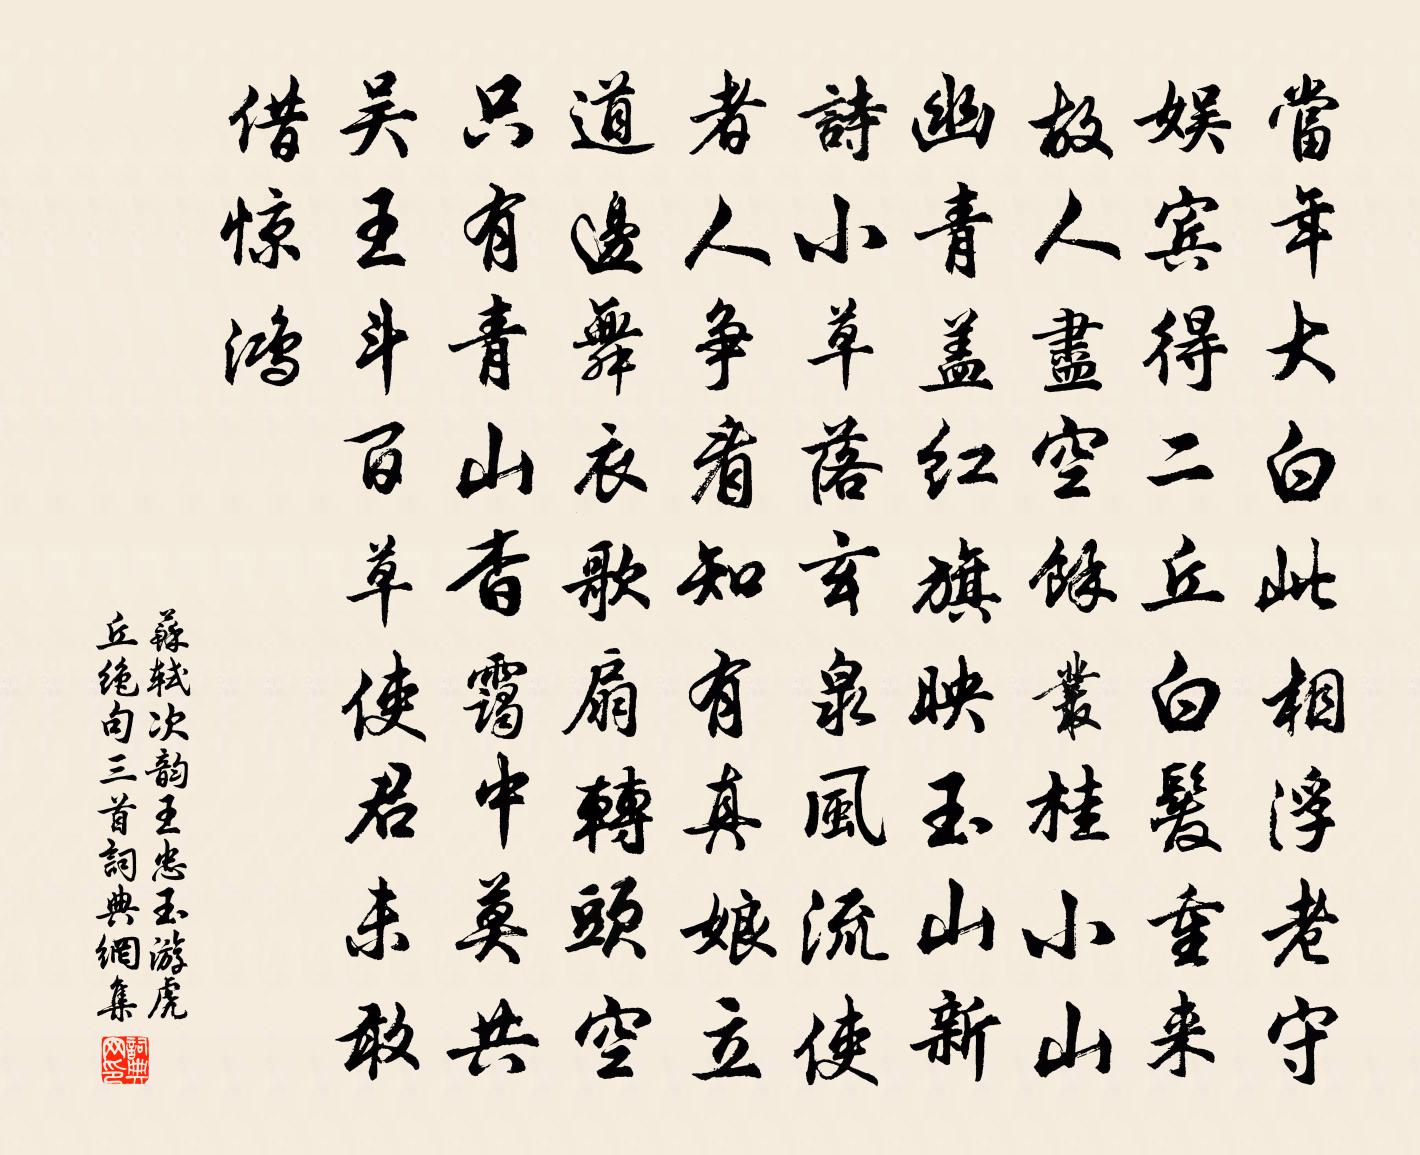 當年大白此相浮老守
娱宾得二丘白髮重来
故人盡空餘叢桂小山
幽青盖红旗映玉山新
詩小草落玄泉風流使
者人争看知有真娘立
道邊舞衣歌扇轉頭空
只有青山杳靄中莫共
吴王斗百草使君未敢
借惊鸿
蘇轼次韵王忠玉游虎
丘绝句三首詞典網集
詞典
网印